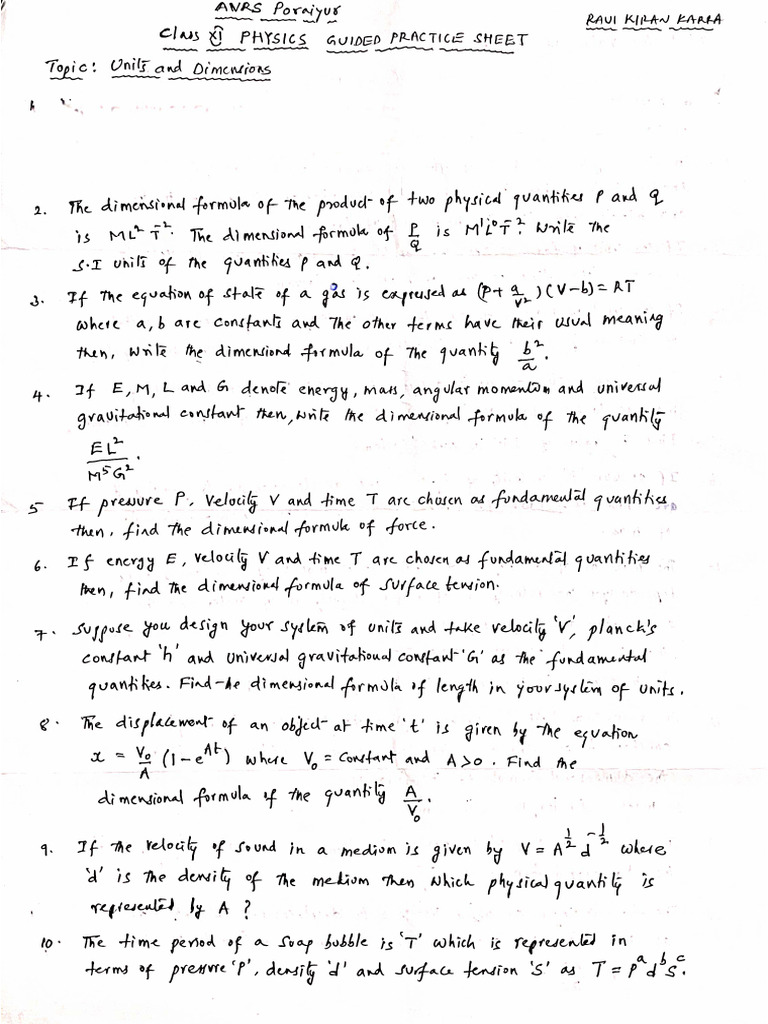 ANRS Poraiyur
RAVI KIRAN KARRA
Class XI PHYSICS GUIDED PRACTICE SHEET
Topic: Units and Dimensions
2. The dimensional formula of the product of two physical quantities P and Q
is ML²T⁻². The dimensional formula of P/Q is M¹L⁰T⁻². Write the
S.I units of the quantities P and Q.
3. If the equation of state of a gas is expressed as (P + a/V²)(V-b) = RT
where a, b are constants and the other terms have their usual meaning
then, write the dimensional formula of the quantity b²/a.
4. If E, M, L and G denote energy, mass, angular momentum and universal
gravitational constant then, write the dimensional formula of the quantity
EL²/M⁵G².
5 If pressure P, velocity V and time T are chosen as fundamental quantities
then, find the dimensional formula of force.
6. If energy E, velocity V and time T are chosen as fundamental quantities
then, find the dimensional formula of surface tension.
7. Suppose you design your system of units and take velocity 'V', planck's
constant 'h' and universal gravitational constant 'G' as the fundamental
quantities. Find the dimensional formula of length in your system of units.
8. The displacement of an object at time 't' is given by the equation
x = V₀/A (1-e^At) where V₀ = constant and A>0. Find the
dimensional formula of the quantity A/V₀.
9. If the velocity of sound in a medium is given by V = A^1/2 d^-1/2 where
'd' is the density of the medium then which physical quantity is
represented by A ?
10. The time period of a soap bubble is 'T' which is represented in
terms of pressure 'P', density 'd' and surface tension 'S' as T = P^a d^b S^c.